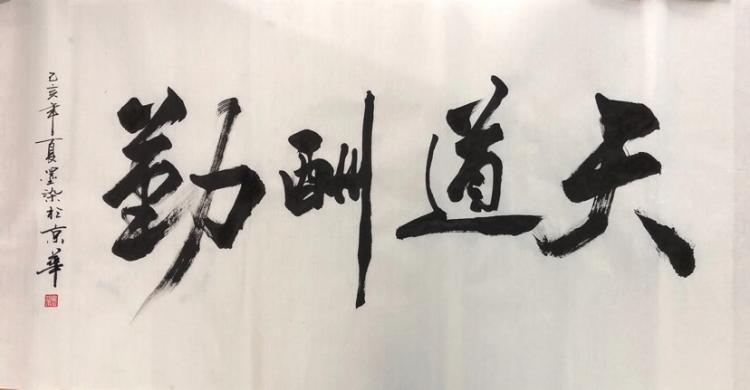 天道酬勤
己亥年夏墨染於京華